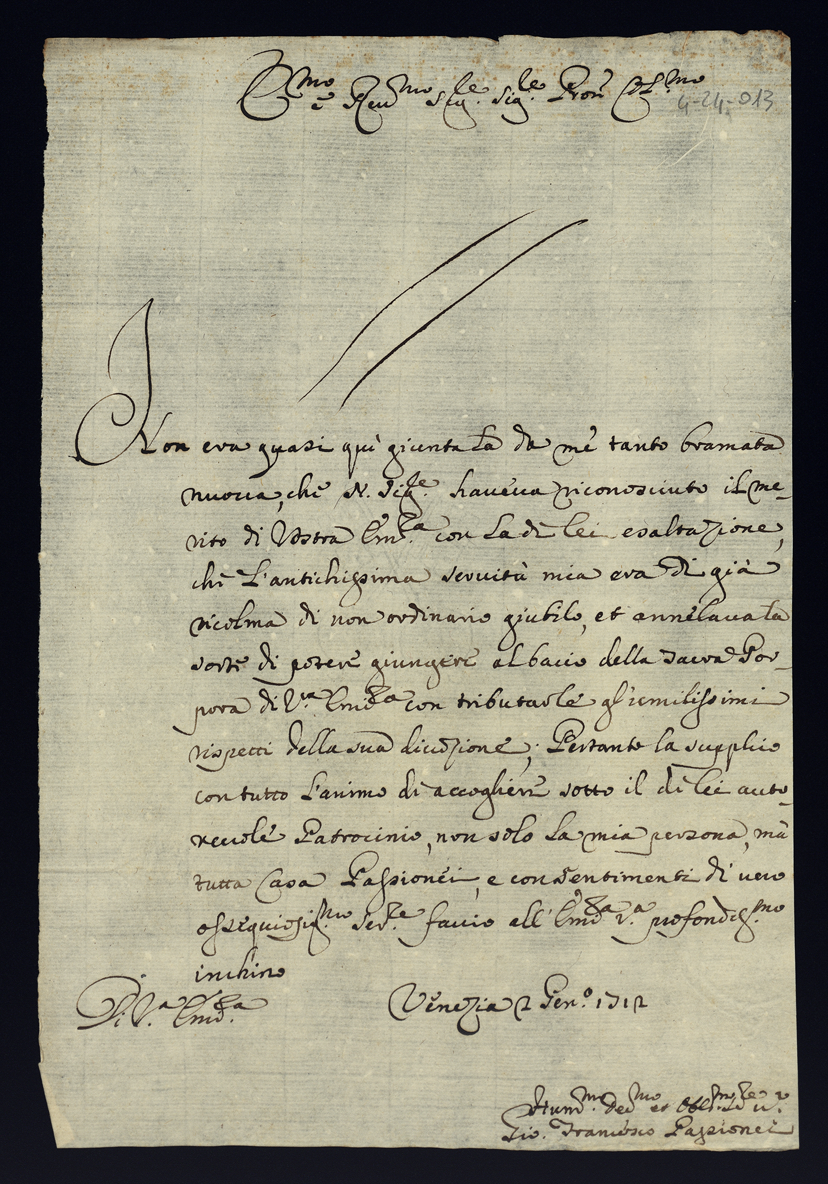 Em.mo e Rev.mo Sig.re Sig.re Pron Col.mo
4-24-013
Non era quasi quì giunta la da mè tanto bramata
nuova, chè N. Sig.re haveva riconosciuto il me-
rito di Vostra Em.za con la di lei esaltazione,
chè l'antichissima servitù mia era di già
ricolma di non ordinario giubilo, et annelava la
sorte di potere giungere al bacio della Sacra Por-
pora di V.ra Em.za con tributarle gl'umilissimi
rispetti della sua divozione; Pertanto la supplico
con tutto l'animo di accogliere sotto il di lei auto-
revole Patrocinio, non solo la mia persona, mà
tutta Casa Passionei, e con sentimenti di vero
ossequiosiss.mo ser.re faccio all'Em.za V.a profondiss.mo
inchino
Di V.a Em.za
Venezia 2 Gen.o 1712
Hum.mo Dev.mo et Obl.mo Se.re v.o
Gio. Francesco Passionei